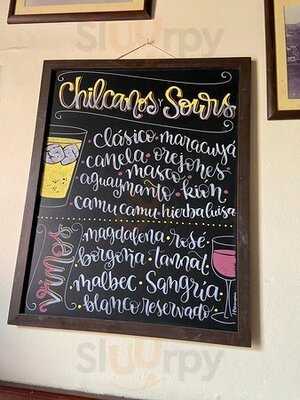 Sluurpy
Chilcanos y Sours
clásico · maracuyá
canela · orejones
masco
aguaymanto · kion
camu camu · hierbaluisa
vinos
magdalena · rosé
borgoña · tannat
malbec · Sangría
blanco reservado
Sluurpy